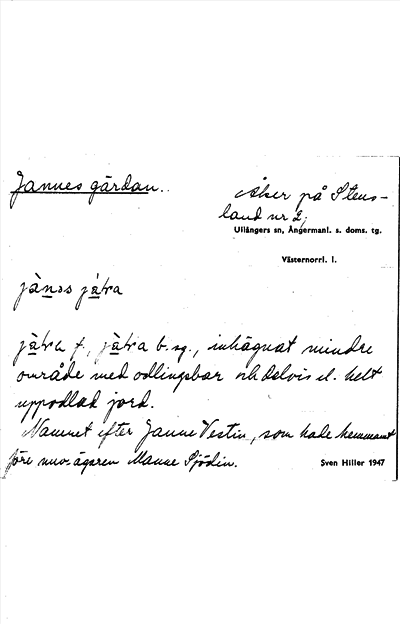 Jannes gärdan.
Åker på Stens-
land nr 2,
Ullångers sn, Ångermanl. s. doms. tg.
Västernorrl. l.
f., b. sg., inhägnat mindre
område med odlingsbar och delvis el. helt
uppodlad jord.
Namnet efter Janne Vestin, som hade hemmanet
före nuv. ägaren Manne Sjödin.
Sven Hiller 1947